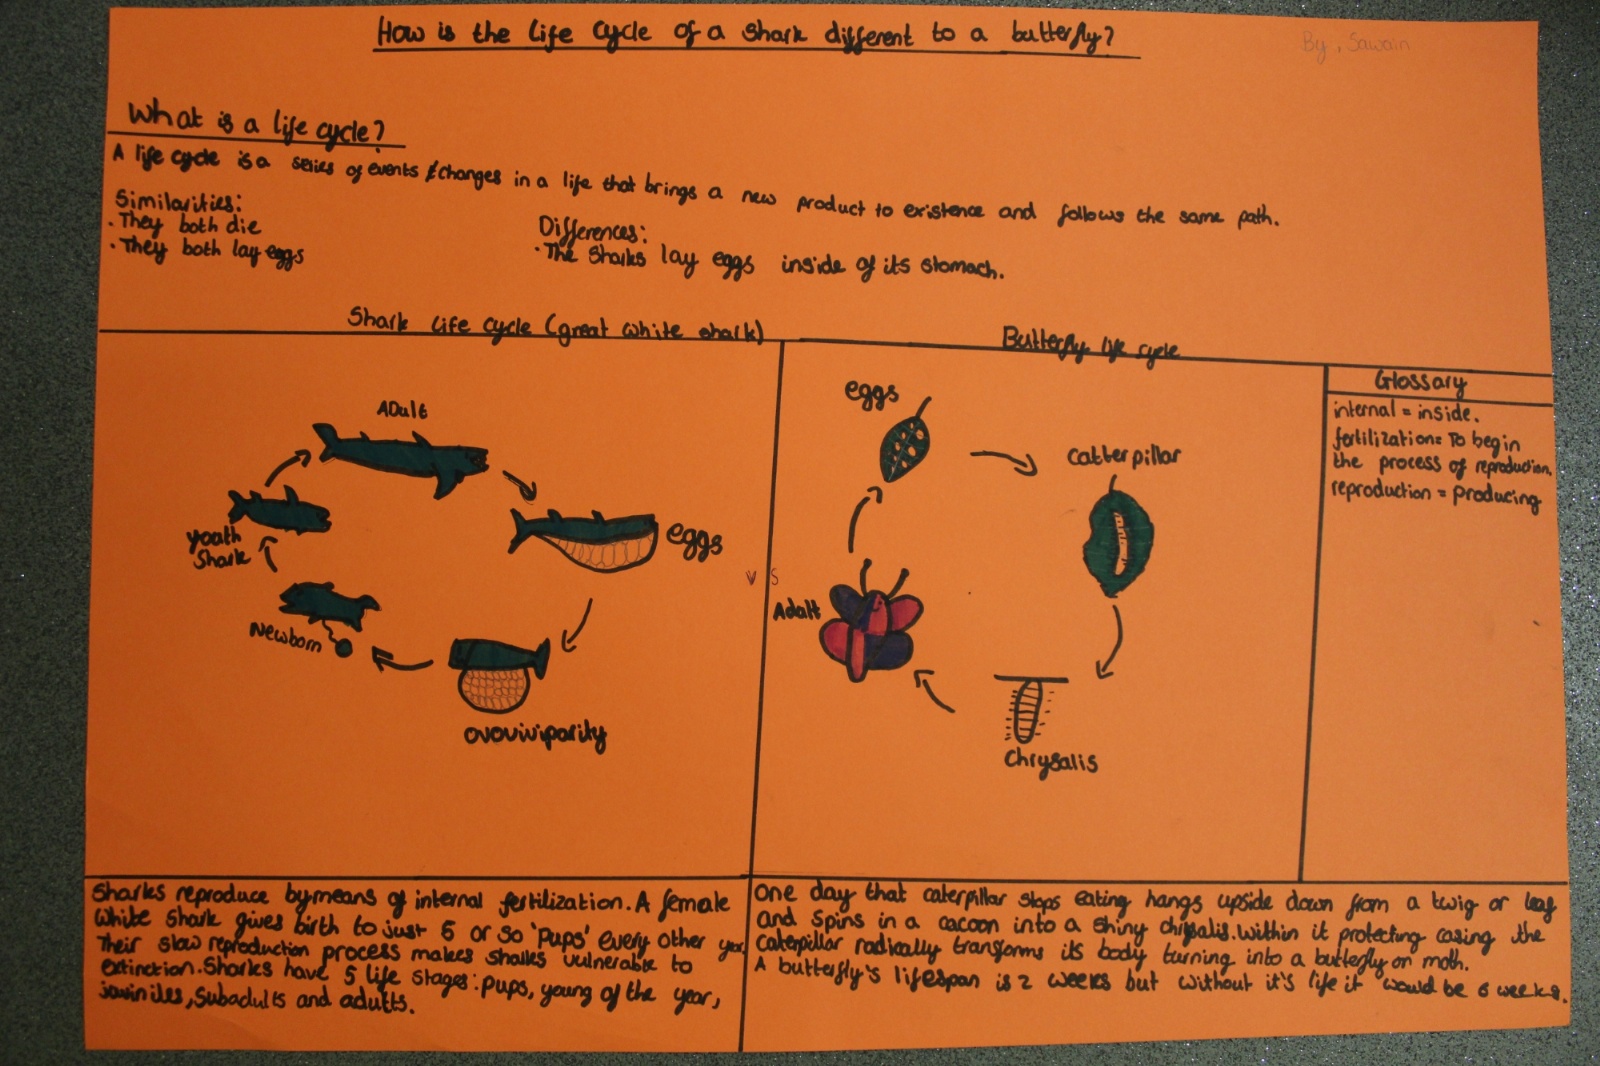 How is the life cycle of a shark different to a butterfly?
By, Sawain
What is a life cycle?
A life cycle is a series of events & changes in a life that brings a new product to existence and follows the same path.
Similarities:
• They both die
• They both lay eggs
Differences:
• The sharks lay eggs inside of its stomach.
Shark life cycle (great white shark)
ADult
eggs
ovoviviparity
Newborn
youth
Shark
VS
Butterfly life cycle
eggs
catterpillar
Chrysalis
Adalt
Glossary
internal = inside.
fertilization= To begin
the process of reproduction.
reproduction = producing
Sharks reproduce by means of internal fertilization. A female
white shark gives birth to just 5 or so 'pups' every other year.
Their slow reproduction process makes sharks vulnerable to
extinction. Sharks have 5 life stages: pups, young of the year,
juviniles, subadults and adults.
One day that caterpillar stops eating hangs upside down from a twig or leaf
and spins in a cacoon into a shiny chrysalis. Within it protecting casing the
caterpillar radically transforms its body turning into a butterfly or moth.
A butterfly's lifespan is 2 weeks but without it's life it would be 6 weeks.